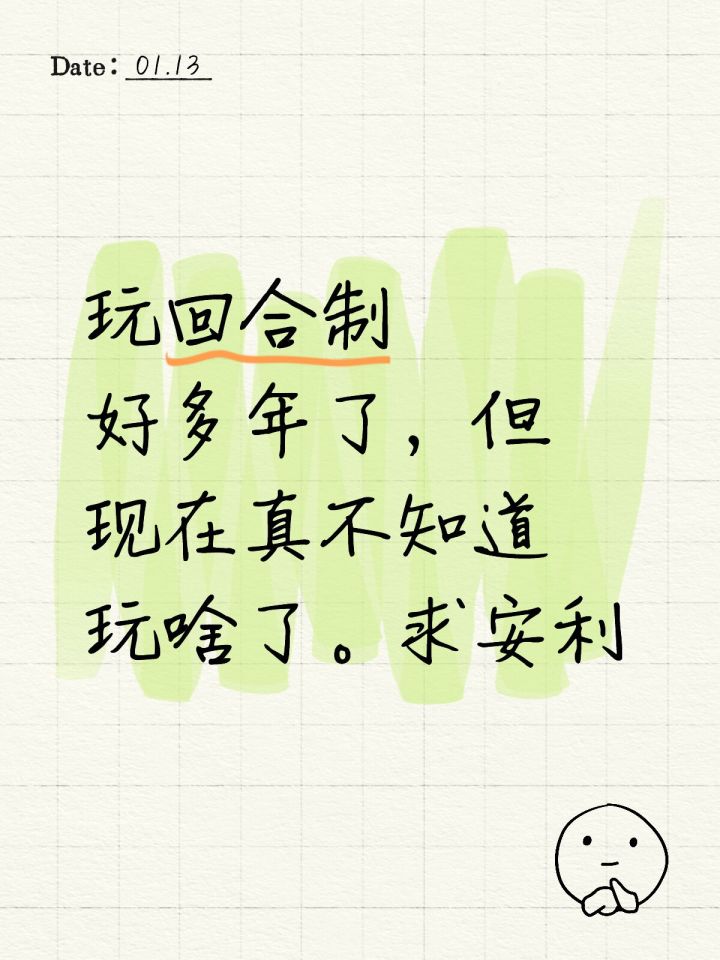 Date: 01.13
玩回合制
好多年了，但
现在真不知道
玩啥了。求安利